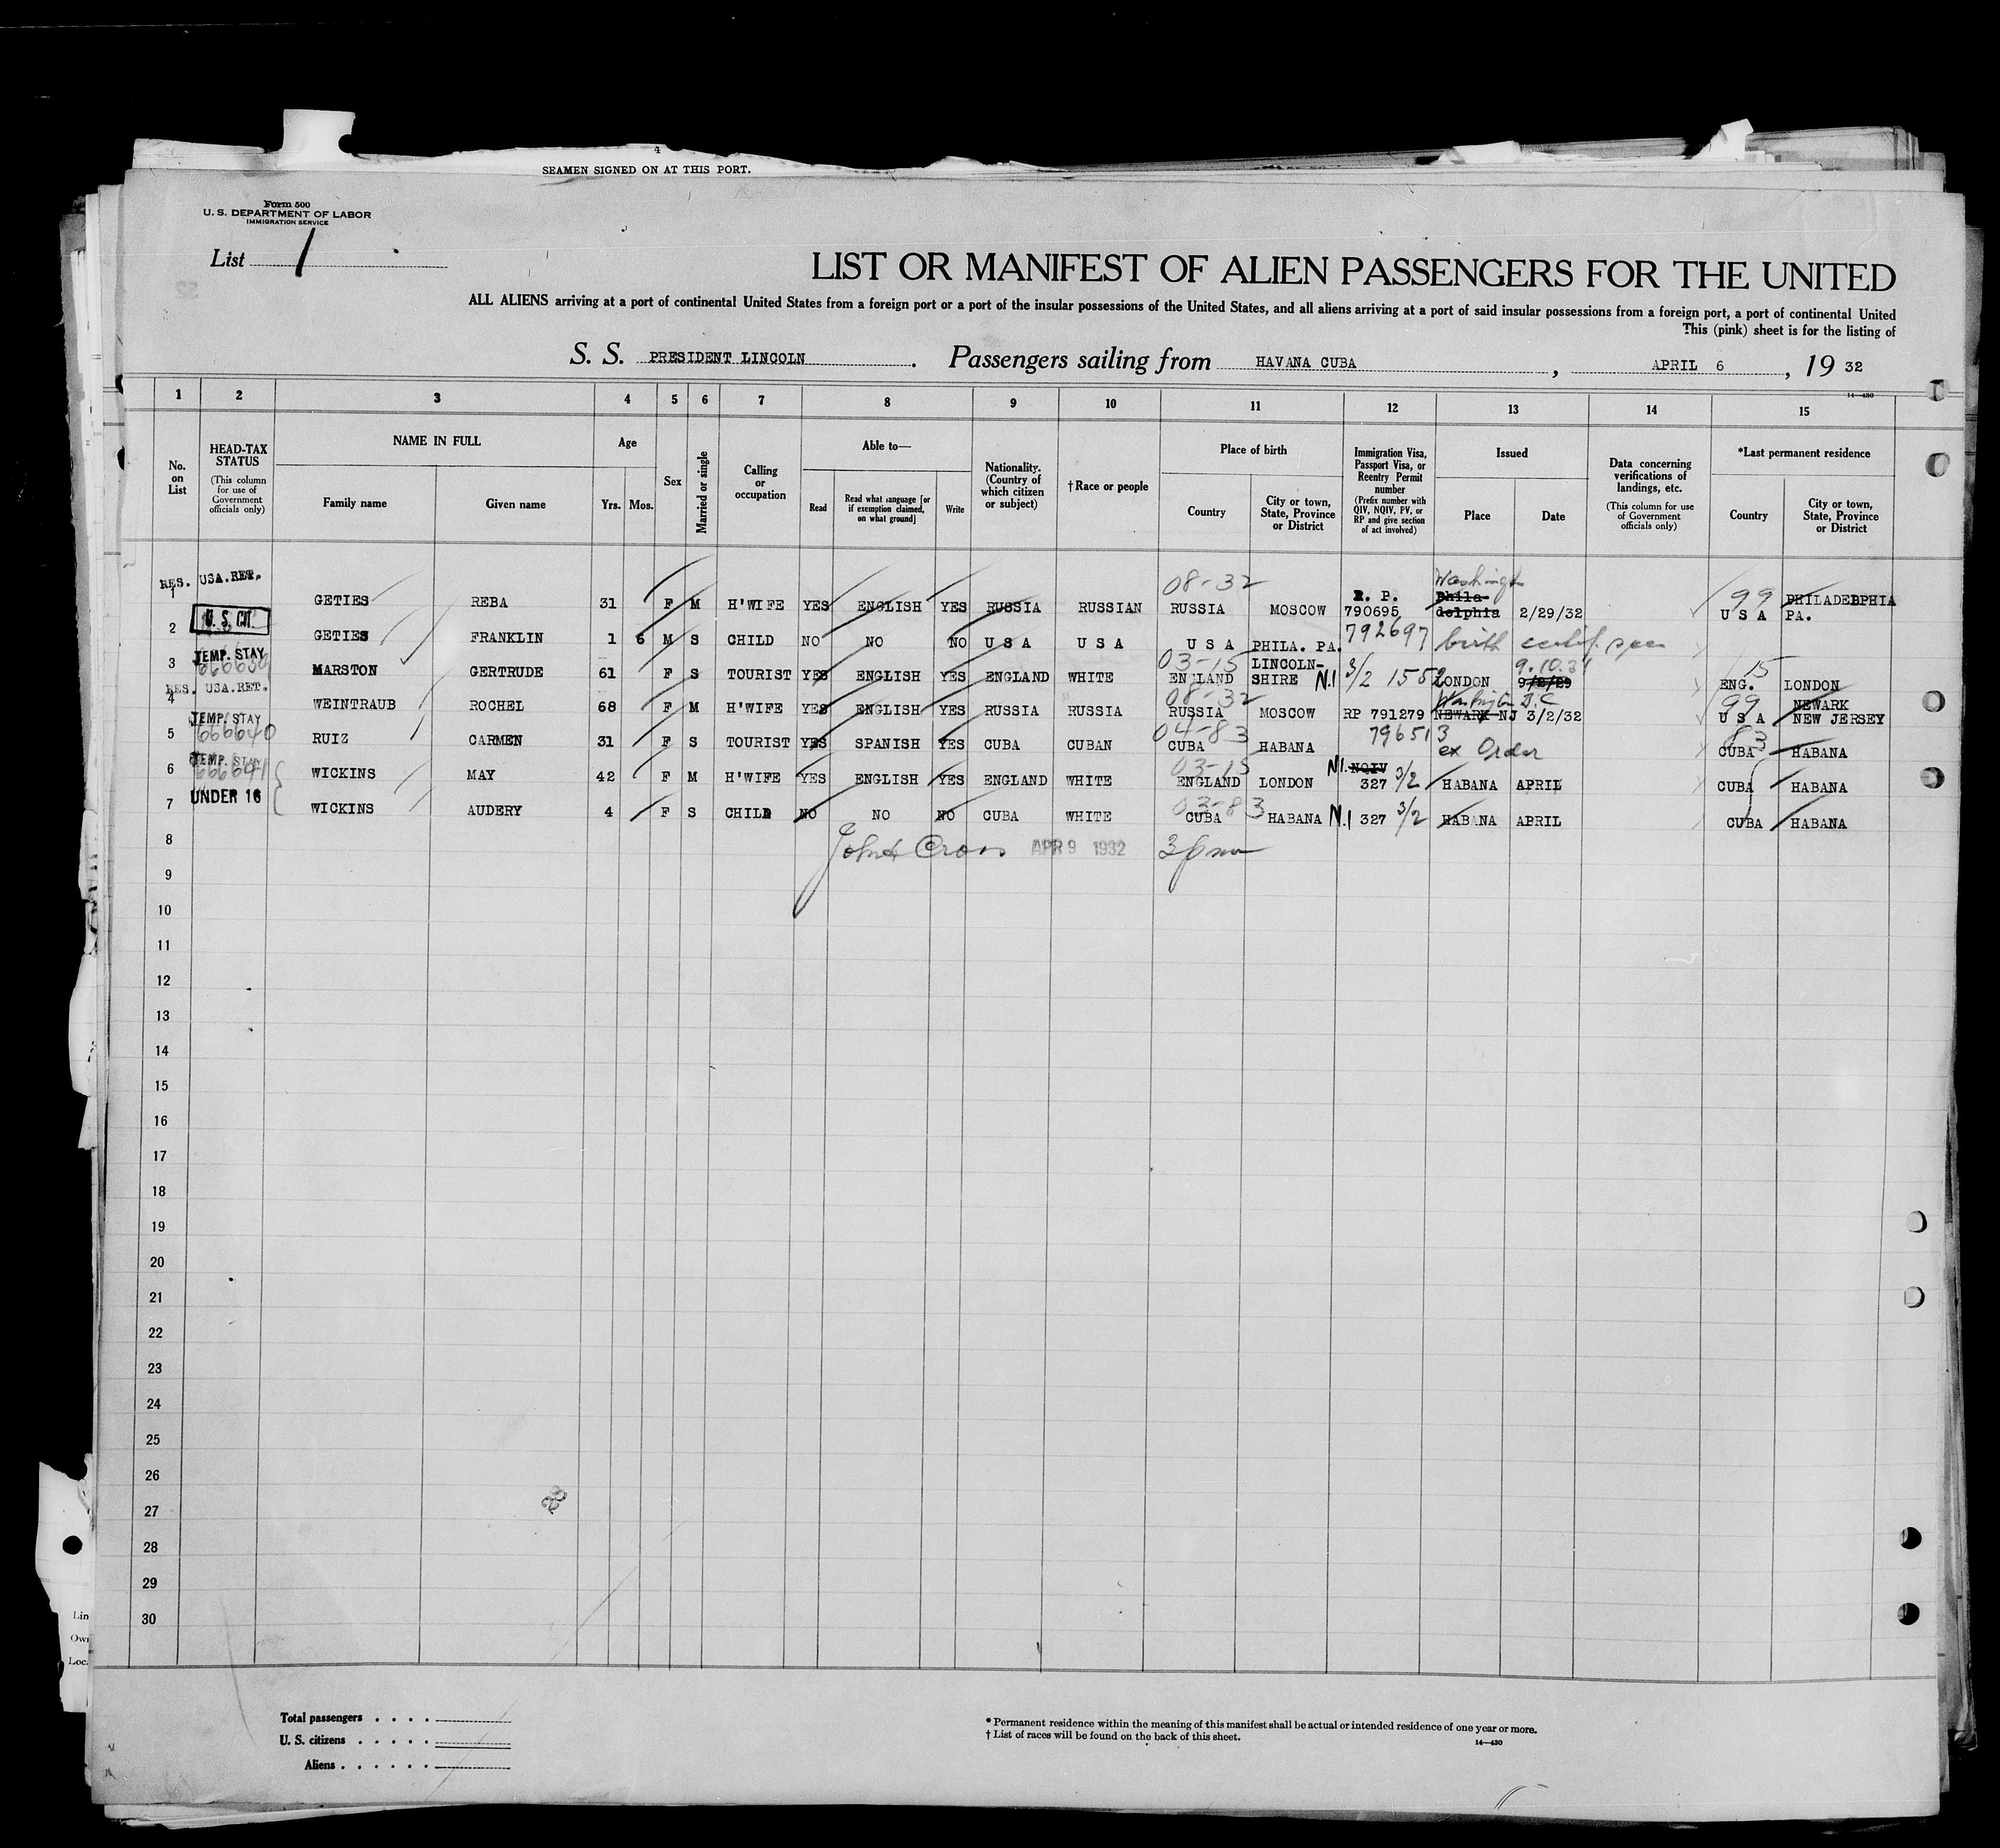 4
SEAMEN SIGNED ON AT THIS PORT.
Form 500
U. S. DEPARTMENT OF LABOR
IMMIGRATION SERVICE
List 1
LIST OR MANIFEST OF ALIEN PASSENGERS FOR THE UNITED
ALL ALIENS arriving at a port of continental United States from a foreign port or a port of the insular possessions of the United States, and all aliens arriving at a port of said insular possessions from a foreign port, a port of continental United
This (pink) sheet is for the listing of
S. S. PRESIDENT LINCOLN. Passengers sailing from HAVANA CUBA, APRIL 6, 19 32
14-480
1 2 3 4 5 6 7 8 9 10 11 12 13 14 15
No. on List
HEAD-TAX STATUS (This column for use of Government officials only)
NAME IN FULL
Family name
Given name
Age
Yrs. Mos.
Sex
Married or single
Calling or occupation
Able to—
Read
Read what language [or if exemption claimed, on what ground]
Write
Nationality. (Country of which citizen or subject)
†Race or people
Place of birth
Country
City or town, State, Province or District
Immigration Visa, Passport Visa, or Reentry Permit number (Prefix number with QIV, NQIV, PV, or RP and give section of act involved)
Issued
Place
Date
Data concerning verifications of landings, etc. (This column for use of Government officials only)
*Last permanent residence
Country
City or town, State, Province or District
RES. USA.RET. 08-32 R. P. Washington 99 PHILADEPHIA
1 GETIES REBA 31 F M H'WIFE YES ENGLISH YES RUSSIA RUSSIAN RUSSIA MOSCOW 790695 Phila-delphia 2/29/32 U S A PA.
U.S. CIT. 792697
2 GETIES FRANKLIN 1 6 M S CHILD NO NO NO U S A U S A U S A PHILA. PA. birth certif. seen
TEMP. STAY 03-15 LINCOLN- 9.10.31 15
3 MARSTON GERTRUDE 61 F S TOURIST YES ENGLISH YES ENGLAND WHITE ENGLAND SHIRE N.I 3/2 1552 LONDON 9/8/29 ENG. LONDON
RES. USA.RET. 08-32 Washington D.C 99 NEWARK
4 WEINTRAUB ROCHEL 68 F M H'WIFE YES ENGLISH YES RUSSIA RUSSIA RUSSIA MOSCOW RP 791279 NEWARK NJ 3/2/32 U S A NEW JERSEY
TEMP. STAY 666640 04-83 796513 83
5 RUIZ CARMEN 31 F S TOURIST YES SPANISH YES CUBA CUBAN CUBA HABANA ex Order CUBA HABANA
TEMP. STAY 666641 03-15 N.I. NQIV
6 WICKINS MAY 42 F M H'WIFE YES ENGLISH YES ENGLAND WHITE ENGLAND LONDON 327 3/2 HABANA APRIL CUBA HABANA
UNDER 16 03-83
7 WICKINS AUDERY 4 F S CHILD NO NO NO CUBA WHITE CUBA HABANA N.I 327 3/2 HABANA APRIL CUBA HABANA
8 Cross APR 9 1932 3 pm
9
10
11
12
13
14
15
16
17
18
19
20
21
22
23
24
25
26
27
28
29
30
Lin
Own
Loc.
Total passengers . . . .
U. S. citizens . . . . .
Aliens . . . . . .
* Permanent residence within the meaning of this manifest shall be actual or intended residence of one year or more.
† List of races will be found on the back of this sheet.
14-430